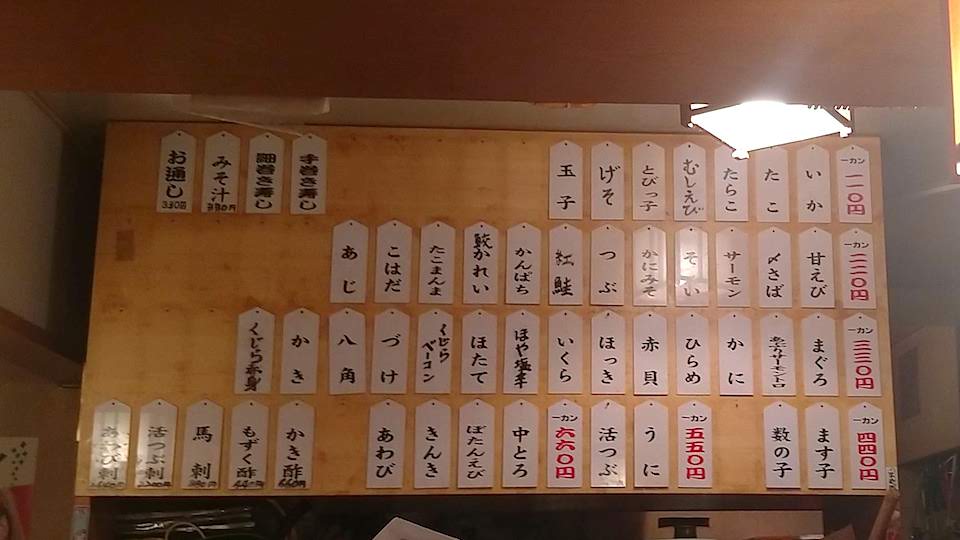 一カン 一一〇円
いか
たこ
たらこ
むしえび
とびっ子
げそ
玉子
手巻き寿し
細巻き寿し
みそ汁 330円
お通し 330円
一カン 二二〇円
甘えび
〆さば
サーモン
そい
かにみそ
つぶ
紅鮭
かんぱち
鮫かれい
たこまんま
こはだ
あじ
一カン 三三〇円
まぐろ
かに
ひらめ
赤貝
ほっき
いくら
ほや塩辛
ほたて
くじらベーコン
づけ
八角
かき
くじら赤身
一カン 四四〇円
ます子
数の子
一カン 五五〇円
うに
活つぶ
一カン 六六〇円
中とろ
ぼたんえび
きんき
あわび
かき酢 660円
もずく酢 440円
馬刺
活つぶ刺
あわび刺